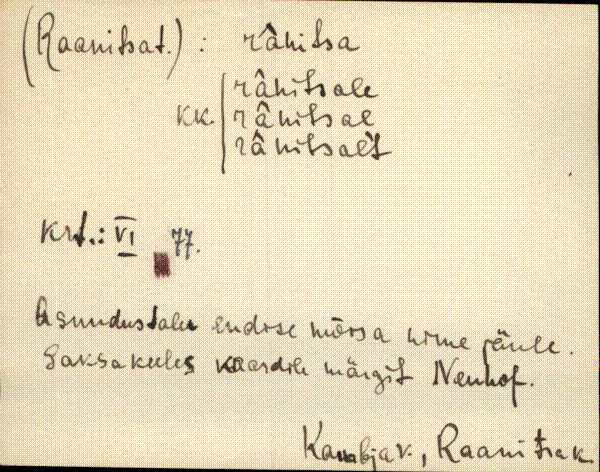 (Raanitsat.) : râhitsa
râhitsale
KK. râhitsal
râhitsalt
Krt.: VI 77.
Asundustalu endise mõisa nime järele.
Saksakeeles kaardile märgit Neuhof.
Kambjav., Raanitsa k.